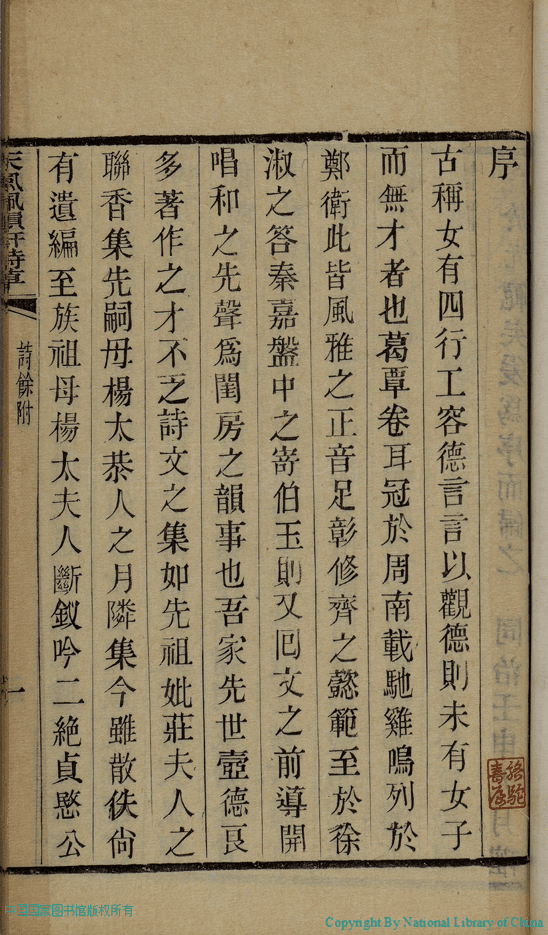 序
古稱女有四行工容德言言以觀德則未有女子
而無才者也葛覃卷耳冠於周南載馳雞鳴列於
鄭衛此皆風雅之正音足彰修齊之懿範至於徐
淑之答秦嘉盤中之寄伯玉則又回文之前導開
唱和之先聲爲閨房之韻事也吾家先世壼德良
多著作之才不乏詩文之集如先祖妣莊夫人之
聯香集先嗣母楊太恭人之月隣集今雖散佚尚
有遺編至族祖母楊太夫人斷釵吟二絶貞愍公
詩餘附
一
中国国家图书馆版权所有
Copyright By National Library of China